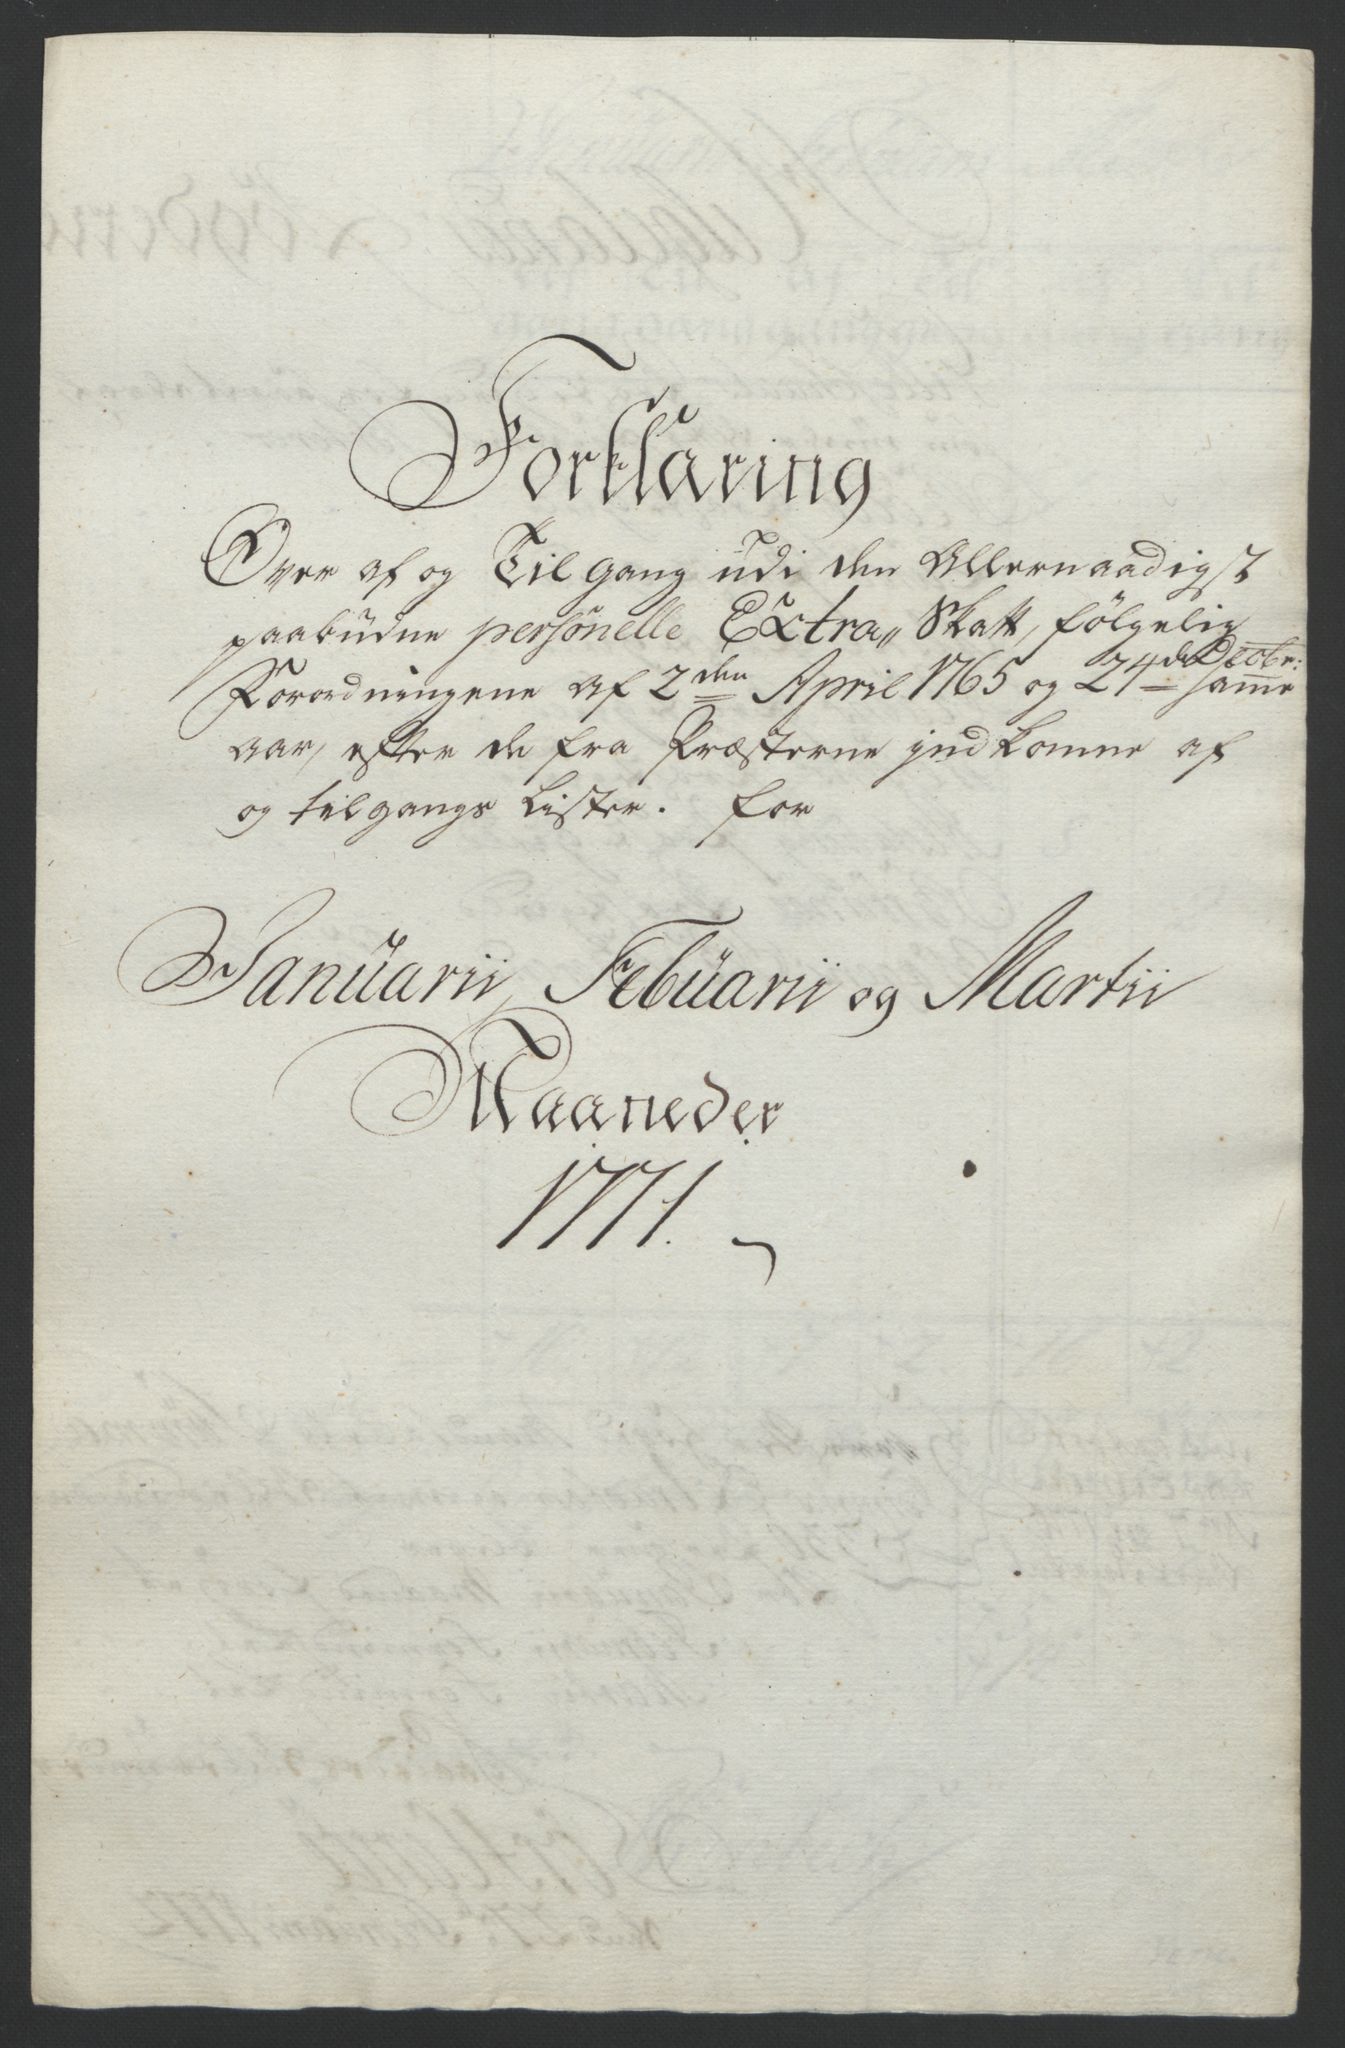 Forklaring
Over af og Til gang udi den Allernaadigst
paabudne personelle Extra„ Skatt, følgelig
Forordningene af 2den April 1765 og 24de Decbr: samme
aar, efter de fra Præsterne indkomne af
og tilgangs Lister. for
Januarii, Febuarii og Martii
Maaneder
1771.